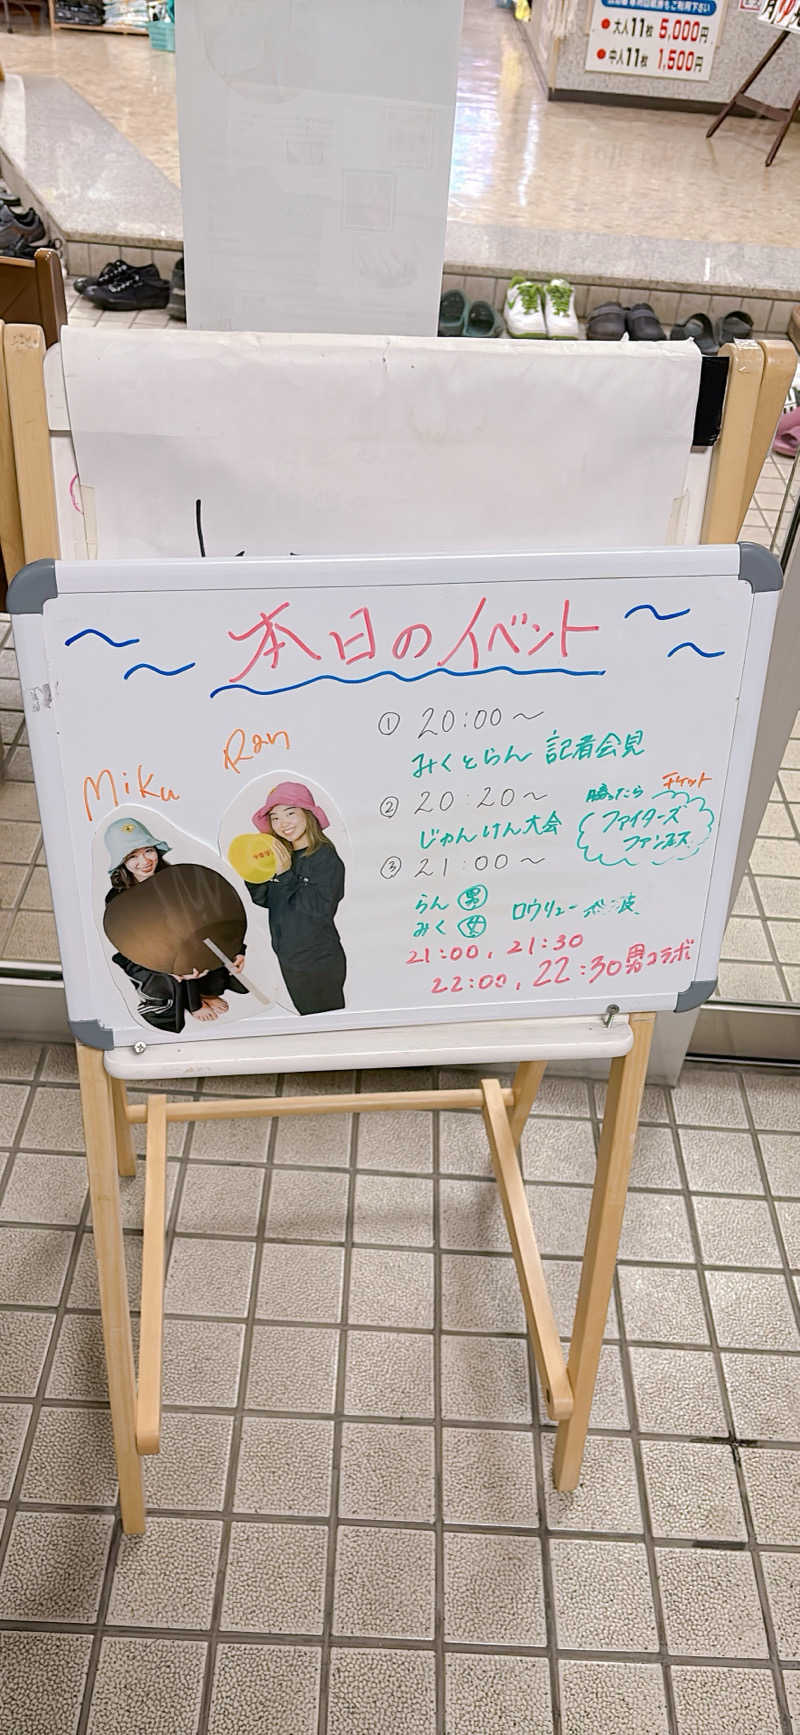 ●大人11枚 5,000円
●中人11枚 1,500円
本日のイベント
Miku
Ran
① 20:00〜
みくとらん 記者会見
② 20:20〜
じゃんけん大会
勝ったら チケット
ファイターズ
③ 21:00〜
らん 男
みく 女
ロウリュー 熱波
21:00, 21:30
22:00, 22:30 男コラボ